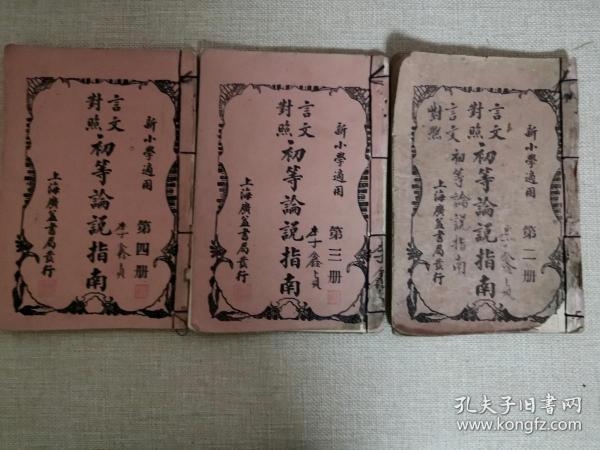 新小學適用
第二册
言文
對照
初等論説指南
言文
對照
初等論説指南
上海廣益書局發行
新小學適用
第三册
李鑫貞
言文
對照
初等論説指南
上海廣益書局發行
新小學適用
第四册
李鑫貞
言文
對照
初等論説指南
上海廣益書局發行
孔夫子旧书网
www.kongfz.com